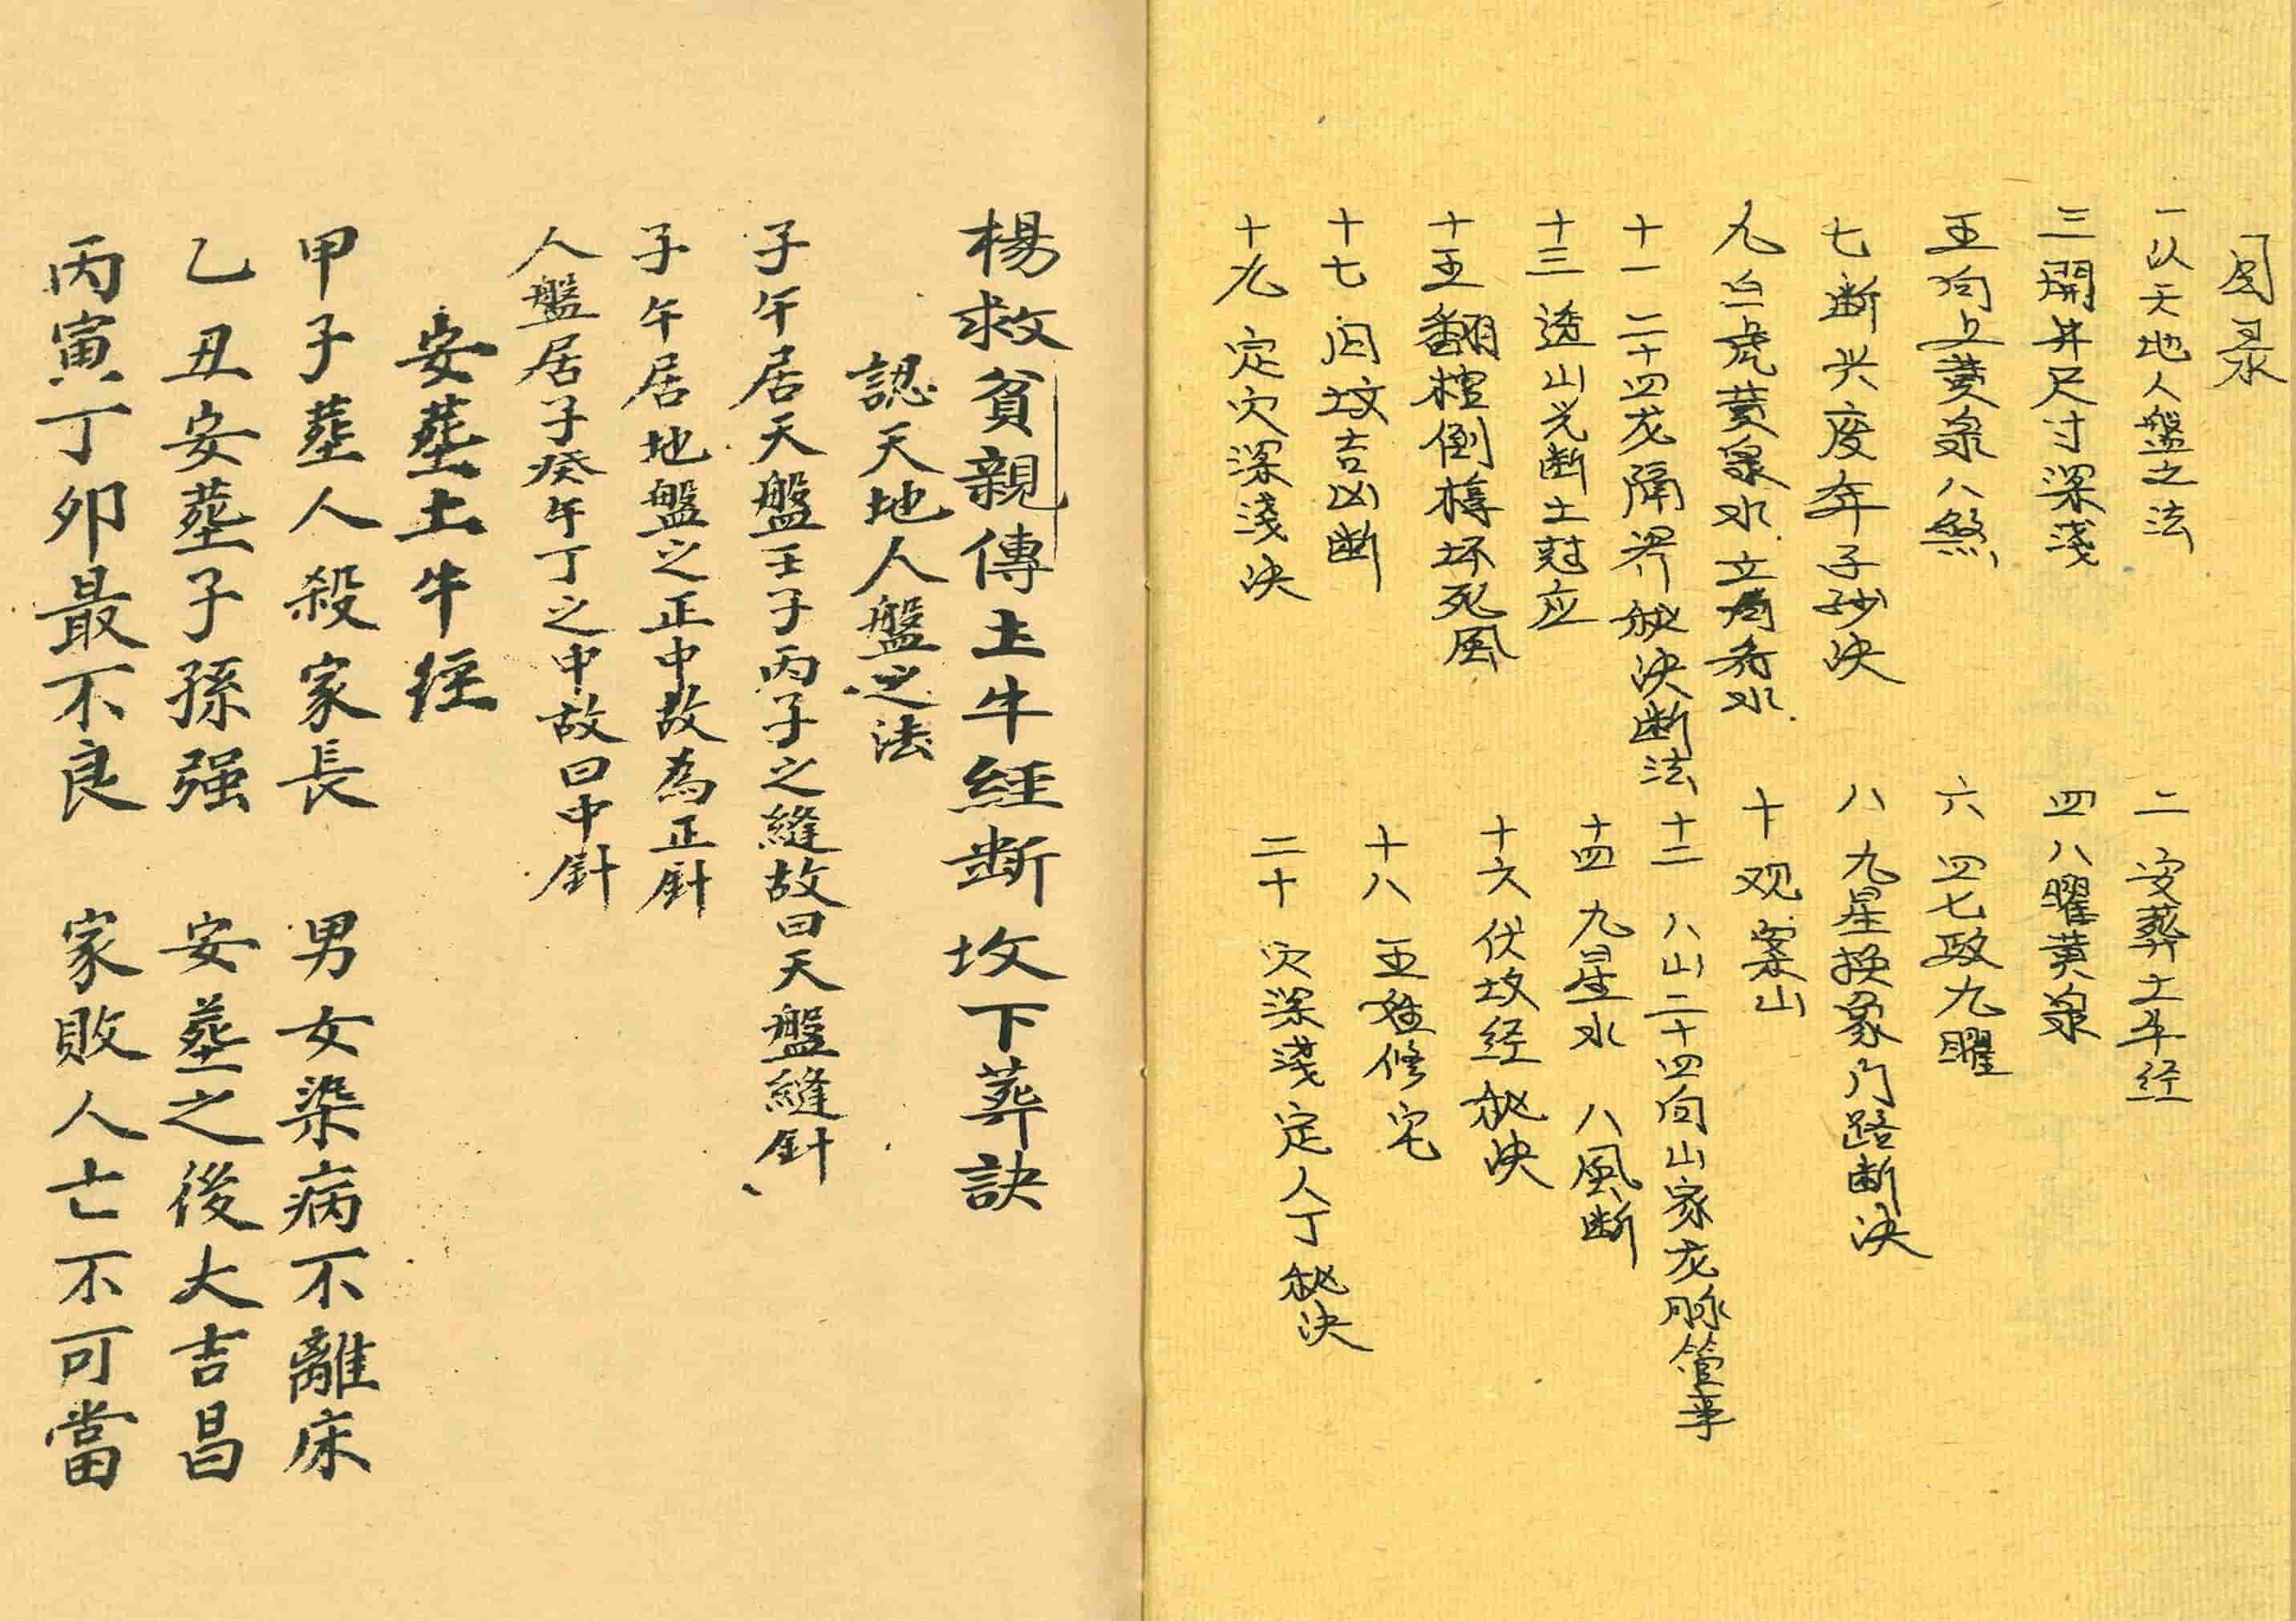 目录
一 以天地人盤之法
二 安葬土牛经
三 開井尺寸深淺
四 八曜黄泉
五 向上黄泉八煞
六 四七政九曜
七 断兴废年子砂决
八 九星换象门路断决
九 虎黄泉水立局看水
十 观案山
十一 二十四龙隔界秘决断法
十二 八山二十四向山家龙脉管事
十三 透山光断土冠应
十四 九星水 八風断
十五 翻棺倒椁坏死風
十六 伏坟经秘决
十七 问坟吉凶断
十八 五姓修宅
十九 定穴深淺决
二十 穴深淺定人丁秘决
楊救貧親傳土牛經断坟下葬訣
認天地人盤之法
子午居天盤壬子丙子之縫故曰天盤縫針
子午居地盤之正中故為正針
人盤居子癸午丁之中故曰中針
安塟土牛经
甲子塟人殺家長 男女染病不離床
乙丑安塟子孫强 安塟之後大吉昌
丙寅丁卯最不良 家敗人亡不可當